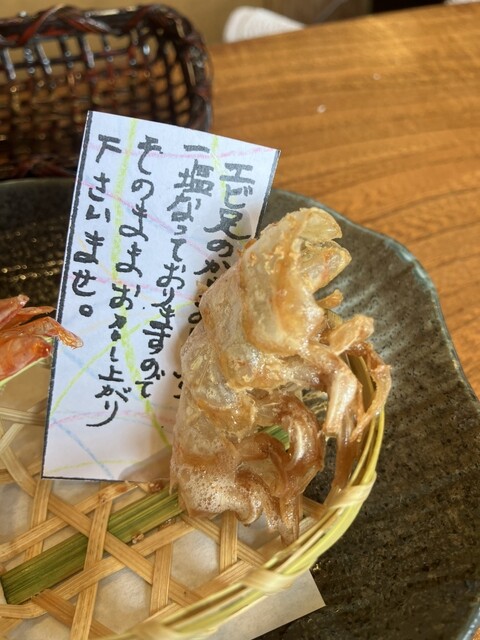 エビ足のか
一塩なっておりますので
そのままお召し上がり
下さいませ。